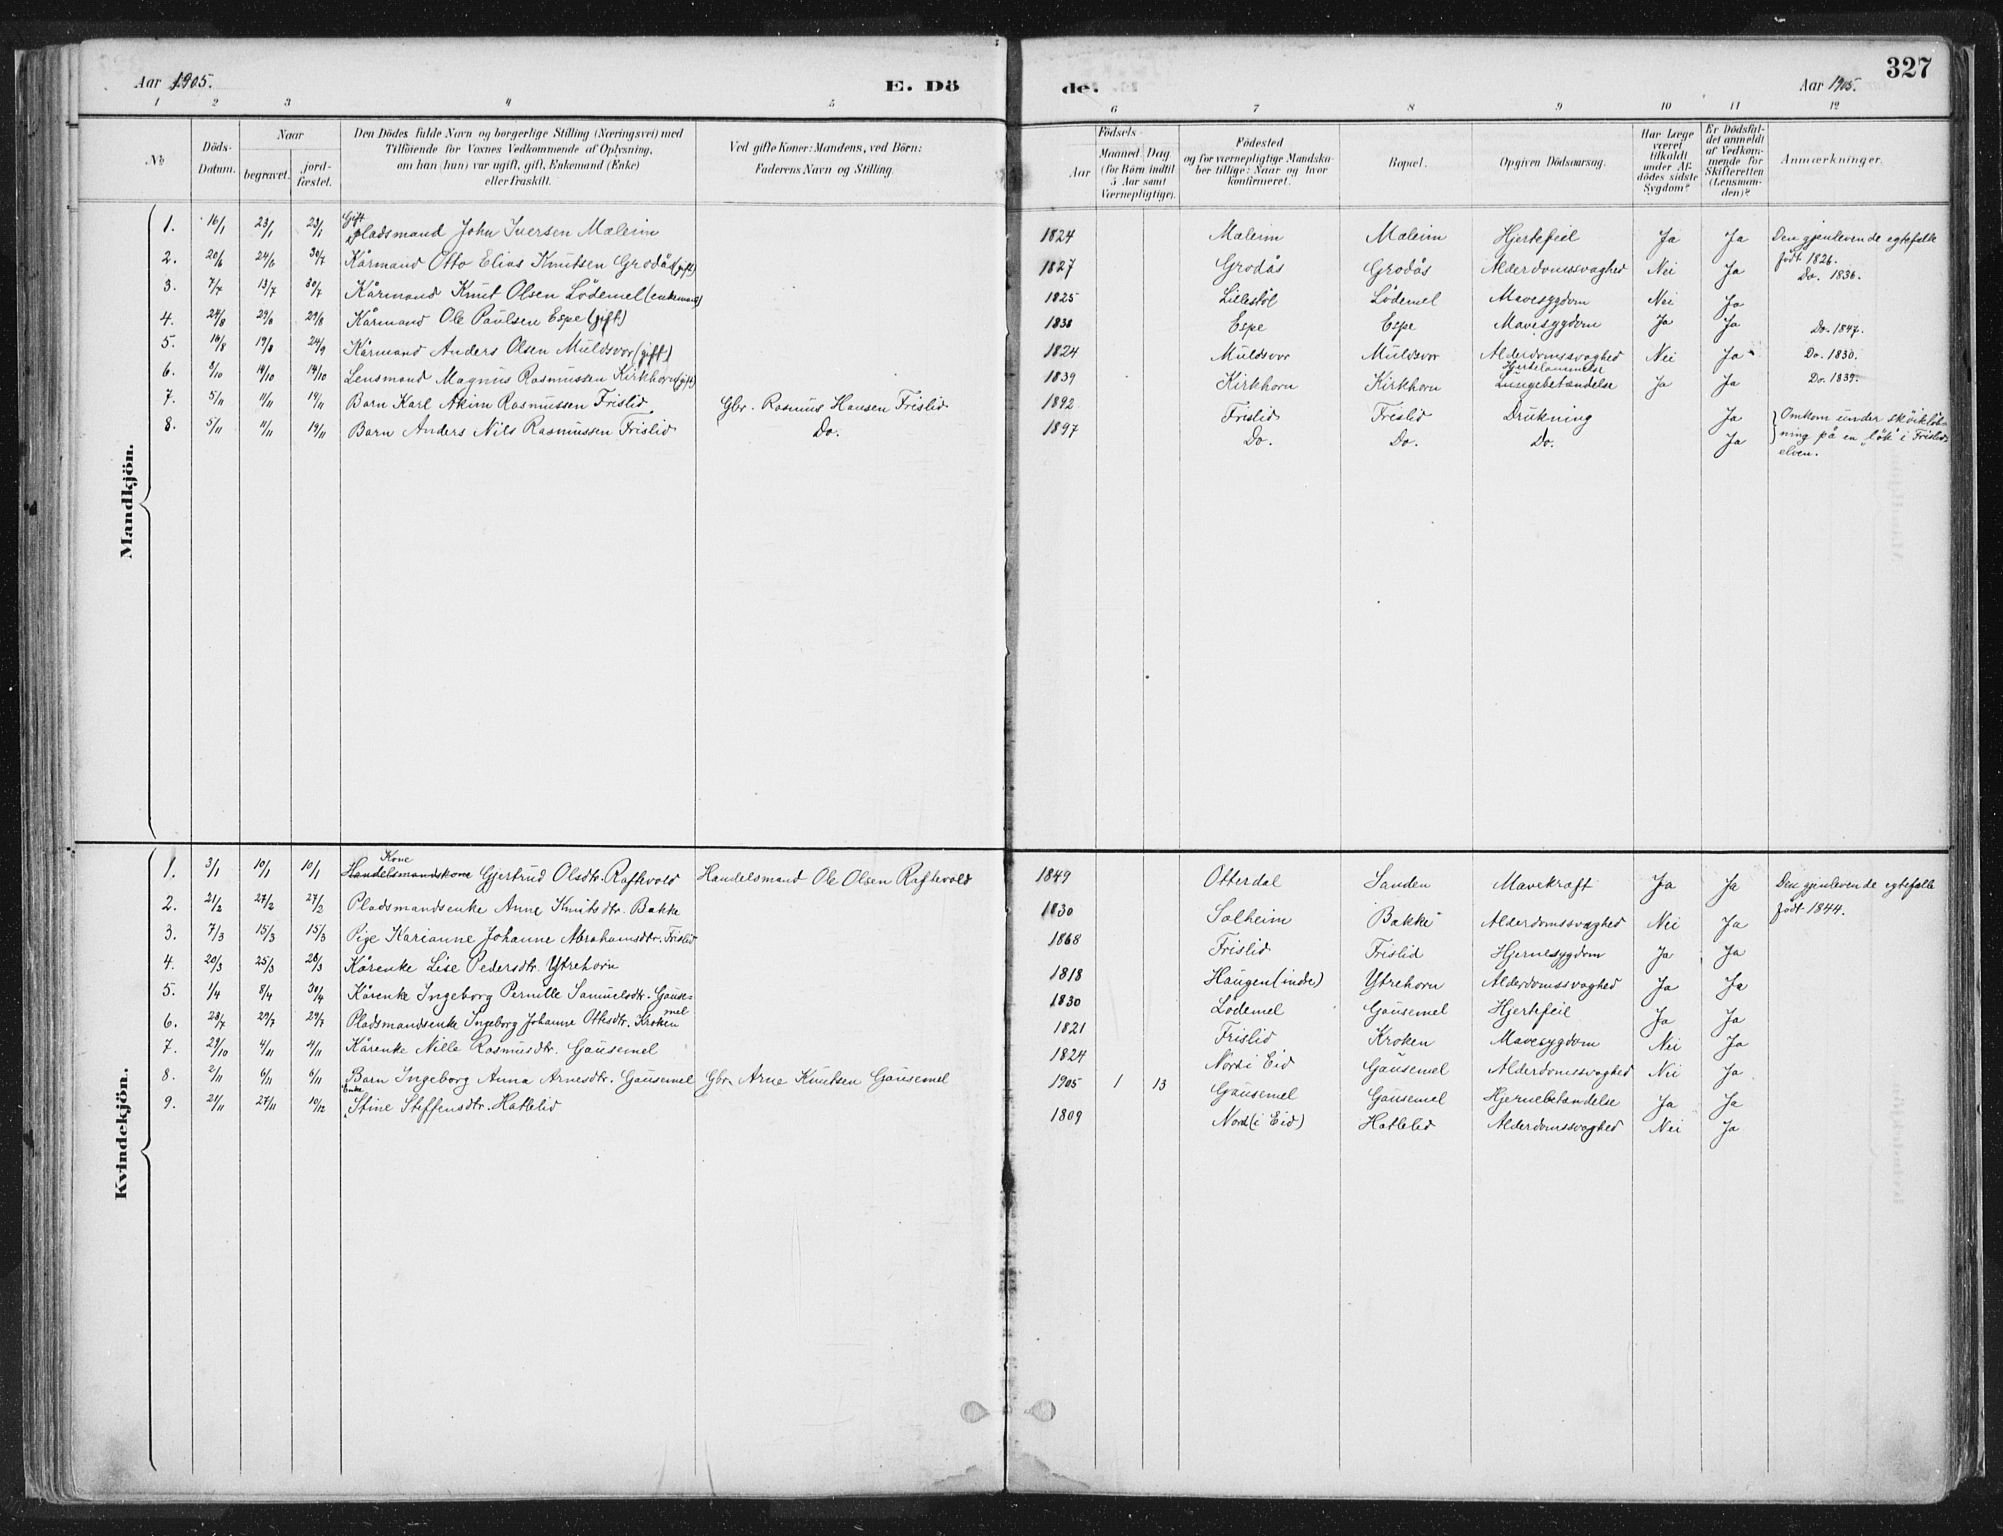 Aar 1905.
E. Dö
de.
Aar 1905.
327
1 2 3 4 5 6 7 8 9 10 11 12
No
Döds-Datum.
Naar
begravet.
jord-fæstet.
Den Dödes fulde Navn og borgerlige Stilling (Næringsvei) med
Tilföiende for Voxnes Vedkommende af Oplysning,
om han (hun) var ugift, gift, Enkemand (Enke)
eller fraskilt.
Ved gifte Koner: Mandens, ved Börn:
Faderens Navn og Stilling.
Födsels-
Aar
Maaned Dag
(for Börn indtil
5 Aar samt
Værnepligtige).
Födested
og for værnepligtige Mandska-
ber tillige: Naar og hvor
konfirmeret.
Bopæl.
Opgiven Dödsaarsag.
Har Læge
været
tilkaldt
under Af-
dödes sidste
Sygdom?
Er Dödsfal-
det anmeldt
af Vedkom-
mende for
Skifteretten
(Lensman-
den)?
Anmærkninger.
Mandkjön.
1. 16/1 23/1 23/1 Gift Pladsmand John Iversen Maleim 1824 Maleim Maleim Hjertefeil Ja Ja Den gjenlevende egtefælle født 1826.
2. 20/6 24/6 30/7 Kårmand Otto Elias Knutsen Grodås (gift) 1827 Grodås Grodås Alderdomssvaghed Nei Ja Do. 1836.
3. 7/7 13/7 30/7 Kårmand Knut Olsen Lødemel (enkemand) 1825 Lillestøl Lødemel Mavesygdom Nei Ja
4. 24/8 29/8 29/8 Kårmand Ole Paulsen Espe (gift) 1838 Espe Espe Mavesygdom Ja Ja Do. 1847.
5. 14/8 19/8 24/9 Kårmand Anders Olsen Muldsvor (gift) 1824 Muldsvor Muldsvor Alderdomssvaghed Nei Ja Do. 1830.
6. 9/10 14/10 14/10 Lensmand Magnus Rasmussen Kirkhorn (gift) 1839 Kirkhorn Kirkhorn Lungebetændelse Ja Ja Do. 1839.
7. 5/11 11/11 19/11 Barn Karl Akim Rasmussen Frislid Gbr. Rasmus Hansen Frislid 1892 Frislid Frislid Drukning Ja Omkom under skøiteløb-
8. 5/11 11/11 19/11 Barn Anders Nils Rasmussen Frislid Do. 1897 Do. Do. Do. Ja ning på en "løk" i Frislid-
elven.
Kvindekjön.
1. 3/1 10/1 10/1 Handelsmandskone Kone Gjertrud Olsdtr. Raftevold Handelsmand Ole Olsen Raftevold 1849 Otterdal Sanden Mavekræft Ja Ja Den gjenlevende egtefælle
født 1844.
2. 21/2 27/2 27/2 Pladsmandsenke Anne Knutsdtr. Bakke 1830 Solheim Bakke Alderdomssvaghed Nei Ja
3. 7/3 15/3 15/3 Pige Karianne Johanne Abrahamsdtr. Frislid 1868 Frislid Frislid Hjernesygdom Ja Ja
4. 20/3 25/3 28/3 Kårenke Lise Pedersdtr. Ytrehorn 1818 Haugen (indre) Ytrehorn Alderdomssvaghed Ja Ja
5. 1/4 8/4 30/4 Kårenke Ingeborg Pernille Samuelsdtr. Gausemel 1830 Lødemel Gausemel Hjertefeil Ja Ja
6. 23/7 29/7 29/7 Pladsmandsenke Ingeborg Johanne Ottesdtr. Kroken 1821 Frislid Kroken Mavesygdom Nei Ja
7. 29/10 4/11 4/11 Kårenke Nille Rasmusdtr. Gausemel 1824 Nord i Eid Gausemel Alderdomssvaghed Nei Ja
8. 2/11 6/11 6/11 Barn Ingeborg Anna Arnesdtr. Gausemel Gbr. Arne Knutsen Gausemel 1905 1 13 Gausemel Gausemel Hjernebetændelse Ja Ja
9. 21/11 27/11 10/12 Enke Stine Steffensdtr. Hatlelid 1809 Nord (i Eid) Hatlelid Alderdomssvaghed Nei Ja